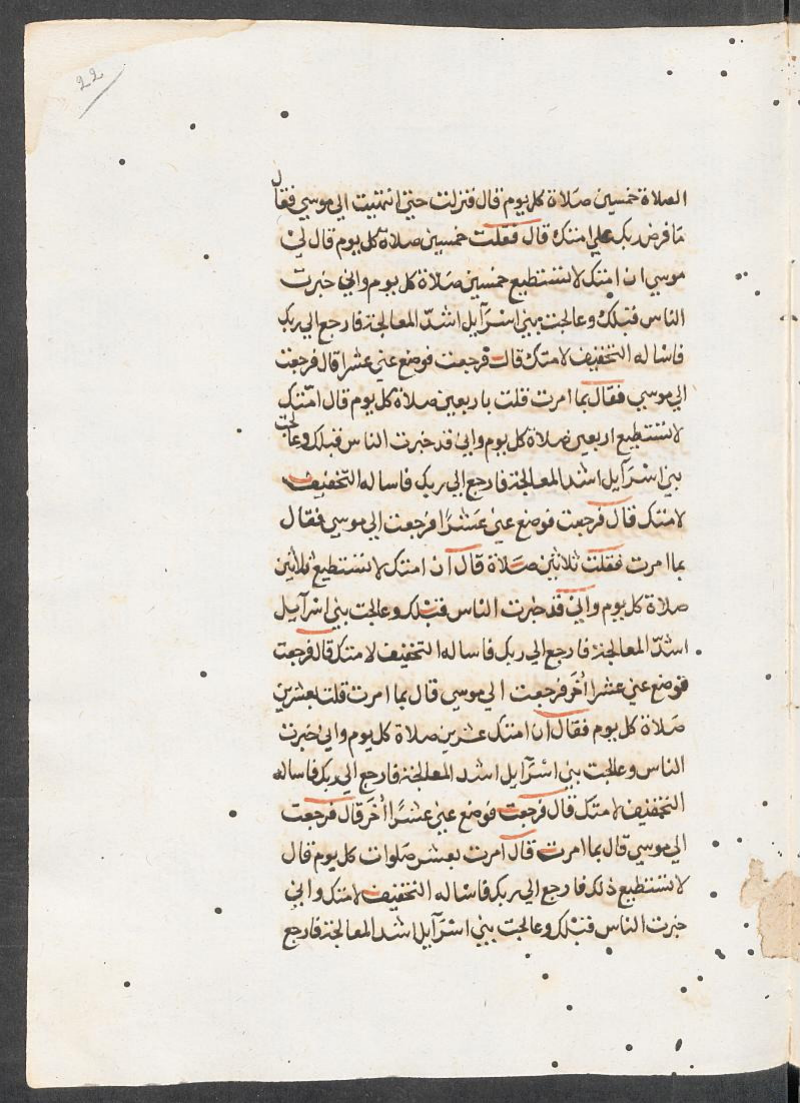 22
الصلاة خمسين صلاة كل يوم قال فنزلت حتى انتهيت الي موسي فقال
ما فرض ربك علي امتك قال فقلت خمسين صلاة كل يوم قال لي
موسي ان امتك لا تستطيع خمسين صلاة كل يوم واني خبرت
الناس قبلك وعالجت بني اسرآيل اشدّ المعالجة فارجع الي ربك
فاساله التخفيف لامتك قال فرجعت فوضع عني عشرا قال فرجعت
الي موسي فقال بما امرت قلت باربعين صلاة كل يوم قال امتك
لا تستطيع اربعين صلاة كل يوم واني قد خبرت الناس قبلك وعالجت
بني اسرآيل اشد المعالجة فارجع الي ربك فاساله التخفيف
لامتك قال فرجعت فوضع عني عشرًا فرجعت الي موسي فقال
بما امرت فقلت ثلاثين صلاة قال ان امتك لا تستطيع ثلاثين
صلاة كل يوم واني قد خبرت الناس قبلك وعالجت بني اسرآيل
اشدّ المعالجة فارجع الي ربك فاساله التخفيف لامتك قال فرجعت
فوضع عني عشرا أخَر فرجعت الي موسي قال بما امرت قلت بعشرين
صلاة كل يوم فقال ان امتك عشرين صلاة كل يوم واني خبرت
الناس وعالجت بني اسرآيل اشد المعالجة فارجع الي ربك فاساله
التخفيف لامتك قال فرجعت فوضع عني عشرًا أخَر قال فرجعت
الي موسي قال بما امرت قال امرت بعشر صلوات كل يوم قال
لا تستطيع ذلك فارجع الي ربك فاساله التخفيف لامتك واني
خبرت الناس قبلك وعالجت بني اسرآيل اشد المعالجة فارجع